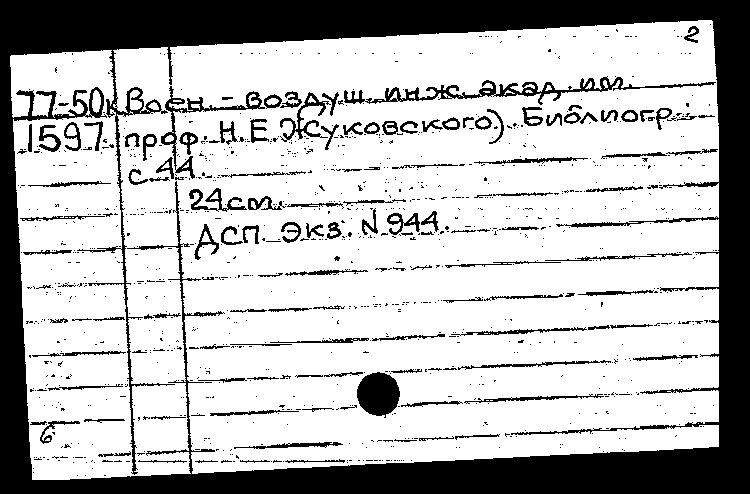 2
77-50к Воен.-воздуш. инж. акад. им.
1597 проф. Н.Е Жуковского). Библиогр.:
с. 44.
24 см.
ДСП. Экз. N 944.
6